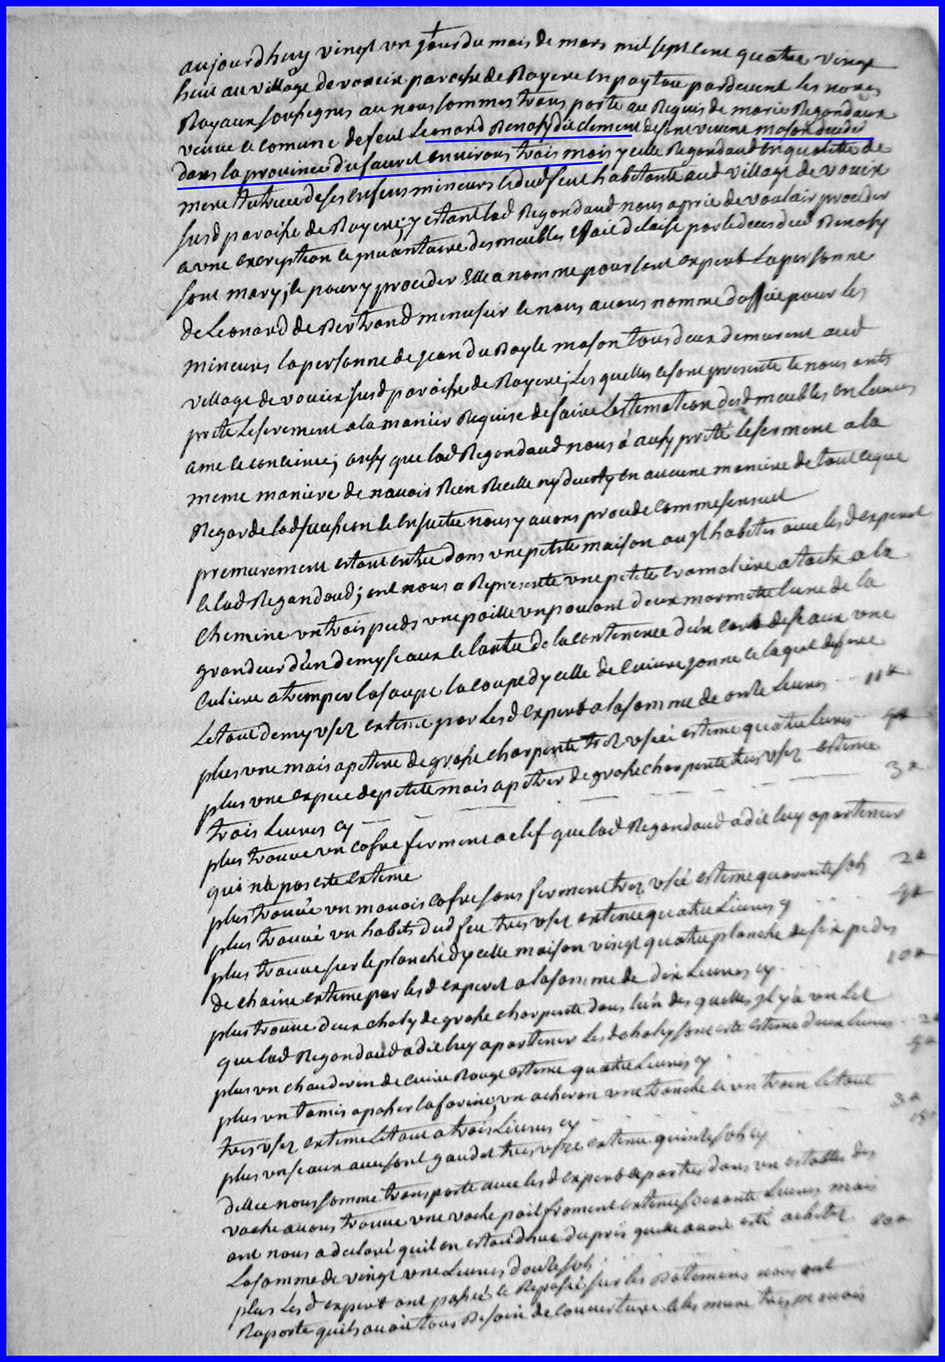 aujourdhuy vingt un jour du mois de mars mil sept cent quatre vingt
huit au village de voueix paroisse de Royere en poytou pardevant les notres
Royaux soussignes au nous sommes trans porte au Requis de marie Regondaux
veuve le comune de feut Leonard Renasy dit clement desont veuene mason decede
dans la province du fauret environs trois mois ycelle Regondaud en qualitte de
mere tutrice de ses enfens mineurs dudfeut habitante aud village de voueix
susd paroisse de Royere; y estant lad Regondaud nous a prie de vouloir proceder
a vne excription le jnvantaire des meubles Effaie delaise par le deces dud Renasy
sont mary; le pour y proceder Elle a nomme pour sont expert La personne
de Leonard de Bertrand menusier le nous avons nomme doffice pour les
mineurs la personne de jean du Royle mason tous deux demurent aud
village de voueix susd paroisse de Royere; Les quelles se sont presente le nous onts
prete Lesserement a la manier Requise de faire Lestemation desd meubles en Leurs
ame le concience; aussy que lad Regondaud nous a aussy prete lesserment a la
meme maniere de navoir Rien Recelle ny en aucune maniere de tout ceque
Regarde lad sucssion le ensuitte nous y avons procede comme sensuit
premierement estant entre dans vne petitte maison au habites avec lesd expert
le lad Regondaud; ont nous a Represente vne petite cramaliere atache a la
chemine vn trois pieds vne paille vn poulont deux marmitte lune de la
grandeur d'un demy seaux le lautre de la contenence d'un de seaux vne
culiere a tremper la soupe la coupe dycelle de cuivre jonne le la que de feree
Le tout demy vsez estime par Lesd expert a la somme de onse Livres 11#
plus vne mais a petrire de grosse charpente tres vsee estime quatre Livres 4#
plus vne espece de petitte mais a petrir de grosse charpente tres vsez estime
trois Livres cy 3#
plus trouve vn cofre ferment a clef que lad Regondaud a dit luy apartenir
qui na pas este estime
plus trouve vn mauvais cofre sans ferment trez vsee estime quarente sols 2#
plus trouve vn habits dud feu tres vsez estime quatre Livres cy 4#
plus trouve sur le planche dycelle maison vingt quatre planche de six pieds
de chaine estime par lesd expert a la somme de dix Livres cy 10#
plus trouve deux chaly de grosse charpente dans lun des quelles jl y a vn Let
que lad Regondaud a dit luy apartenir Lesd chaly sont este estime deux Livres 2#
plus vn chauderon de cuivre Rouge estime quatre Livres cy 4#
plus vn tamis a passer la farine; vn acheron vne tranche le vn Le tout
tres vsez estime Le tout a trois Livres cy 3#
plus vn seaux avec sont gaudet tres vsee estime quinse sols cy 15
dellec nous somme transporte avec lesd expert le parties dans vn estables des
vache avons trouve vne vache poil froment estime soixante Livres mais
ont nous a declare quil en estoit dhue du prix quelle avoit este achetee 60#
La somme de vingt vne Livres douse sols
plus Lesd expert ont passe le Repasse sur les Batements nous ont
Raporte quils avoit tous Besoin de couverture le les murs tres mauvais